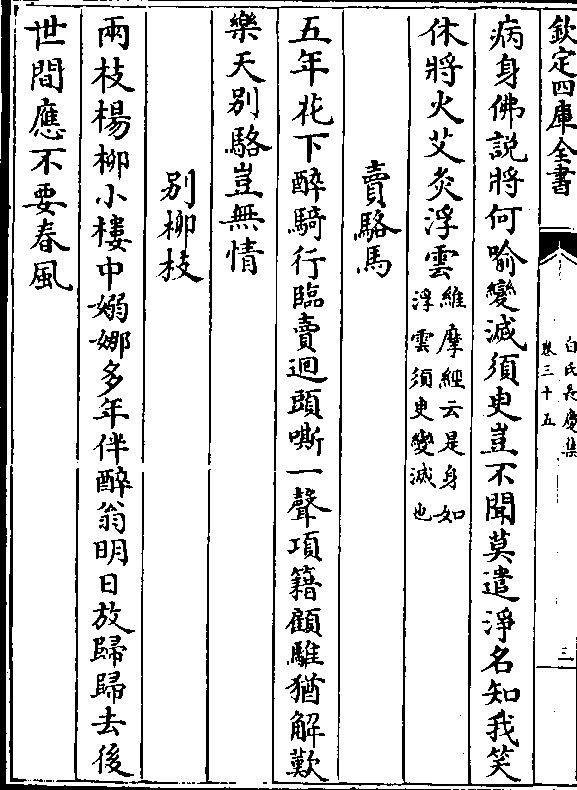 欽定四庫全書
白氏長慶集
卷三十五
三
病身佛説將何喻變滅須臾豈不聞莫遣淨名知我笑
休將火艾灸浮雲維摩經云是身如
浮雲須臾變滅也
賣駱馬
五年花下醉騎行臨賣迴頭嘶一聲項籍顧騅猶解歎
樂天别駱豈無情
别柳枝
兩枝楊柳小樓中嫋娜多年伴醉翁明日放歸歸去後
世間應不要春風